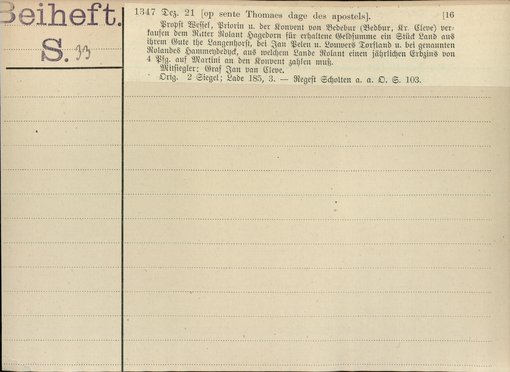 Beiheft.
S. 33
1347 Dez. 21 [op sente Thomaes dage des apostels]. [16
Propst Wessel, Priorin u. der Konvent von Bedebur (Bedbur, Kr. Cleve) ver-
kaufen dem Ritter Rolant Hagedorn für erhaltene Geldsumme ein Stück Land aus
ihrem Gute the Langenhorst, bei Jan Pelen u. Louwers Torfland u. bei genannten
Rolandes Hammeydedyck, aus welchem Lande Rolant einen jährlichen Erbzins von
4 Pfg. auf Martini an den Konvent zahlen muß.
Mitsiegler: Graf Jan van Cleve.
Orig. 2 Siegel; Lade 185, 3. — Regest Scholten a. a. O. S. 103.